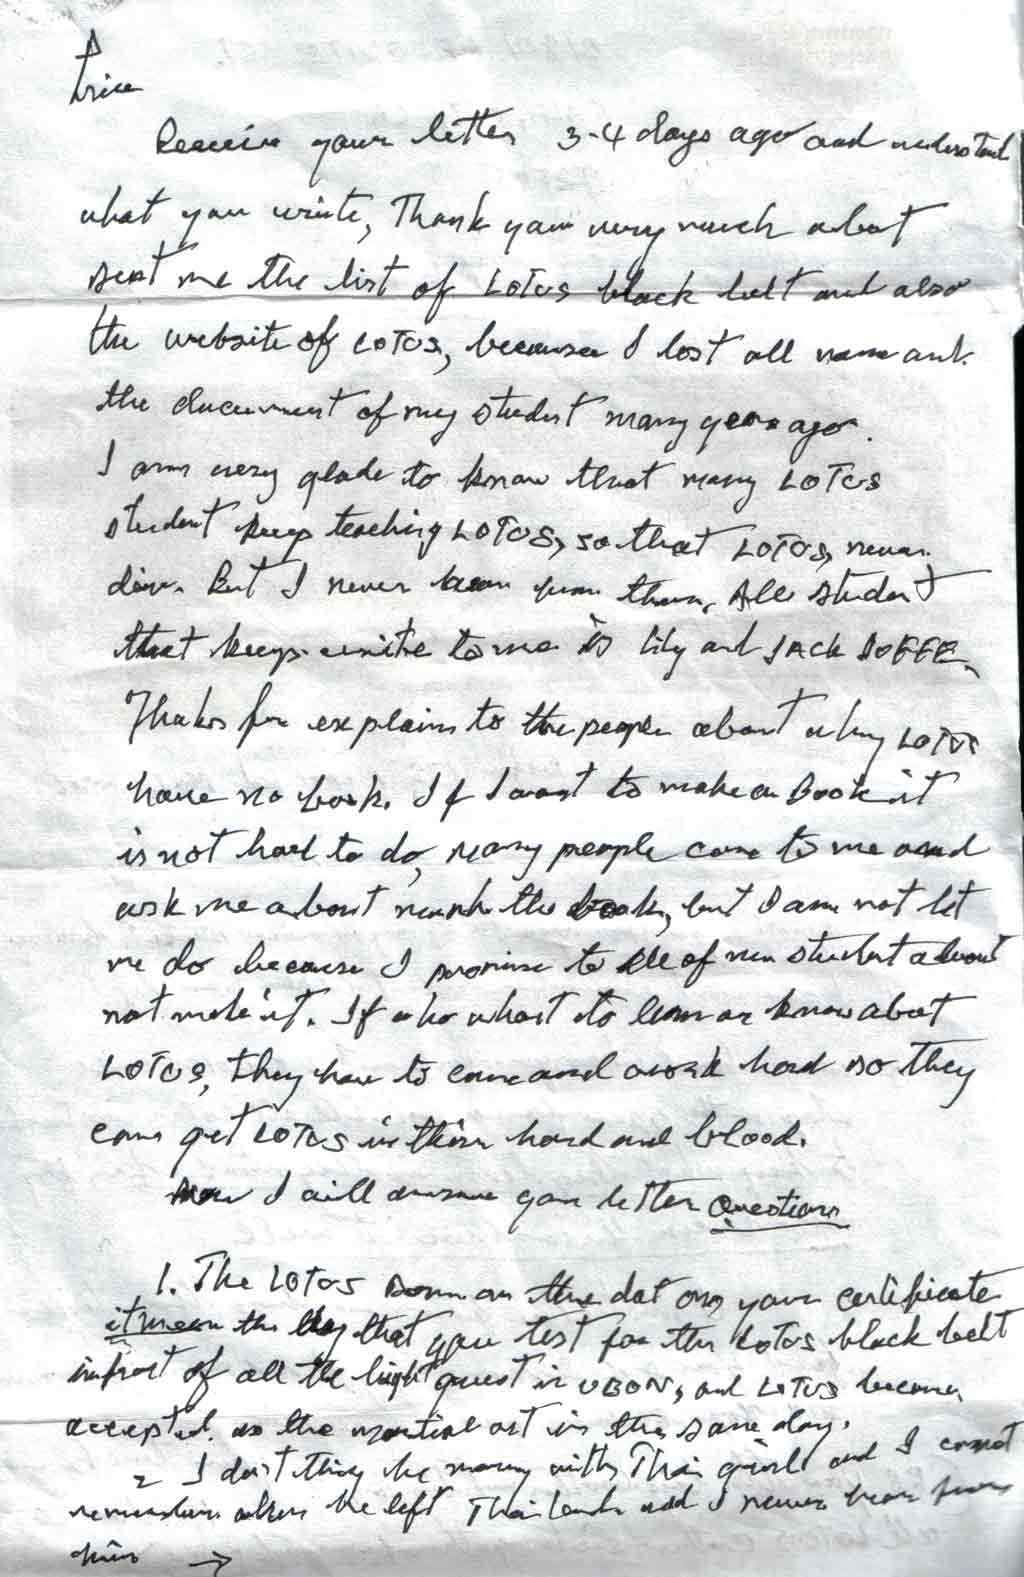 Receive your letter 3-4 days ago and understand
what you write, Thank you very much about
sent me the list of LOTUS black belt and also
the website of LOTUS, because I lost all name and
the document of my student many year ago.
I am very glade to know that many LOTUS
student keep teaching LOTUS, so that LOTUS, never
die. But I never hear from them, All student
that keep write to me is Lily and JACK DOFFE.
Thaks for explain to the people about why LOTUS
have no book. If I want to make a Book it
is not hard to do, many people come to me and
ask me about the book, but I am not let
me do because I promise to all of student about
not make it. If who whant to learn or know about
LOTUS, they have to come and work hard so they
can get LOTUS in hard and blood.
Now I will answer your letter Questions
1. The LOTUS Born on the dat on your certificate
it mean the day that you test for the Lotus black belt
infront of all the hight quest in UBON, and LOTUS become
accepted as the martial art in the same day.
2 I don't thing he marry with Thai girl and I cannot
remember when he left Thailand and I never hear from
him →